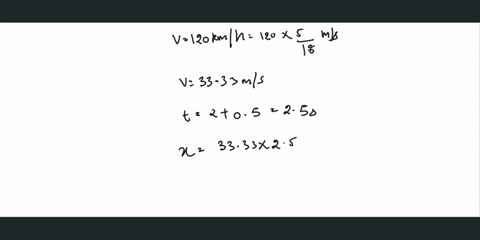 V=120km/h = 120 × 5/18 m/s
V= 33.33 m/s
t= 2+0.5 = 2.5s
x= 33.33×2.5